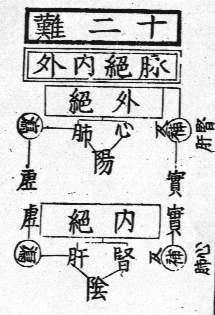 十二難
脉絶内外
外絶
腎肝
反補
心肺
陽
實
虚
内絶
實
虚
心肺
反補
腎肝
陰